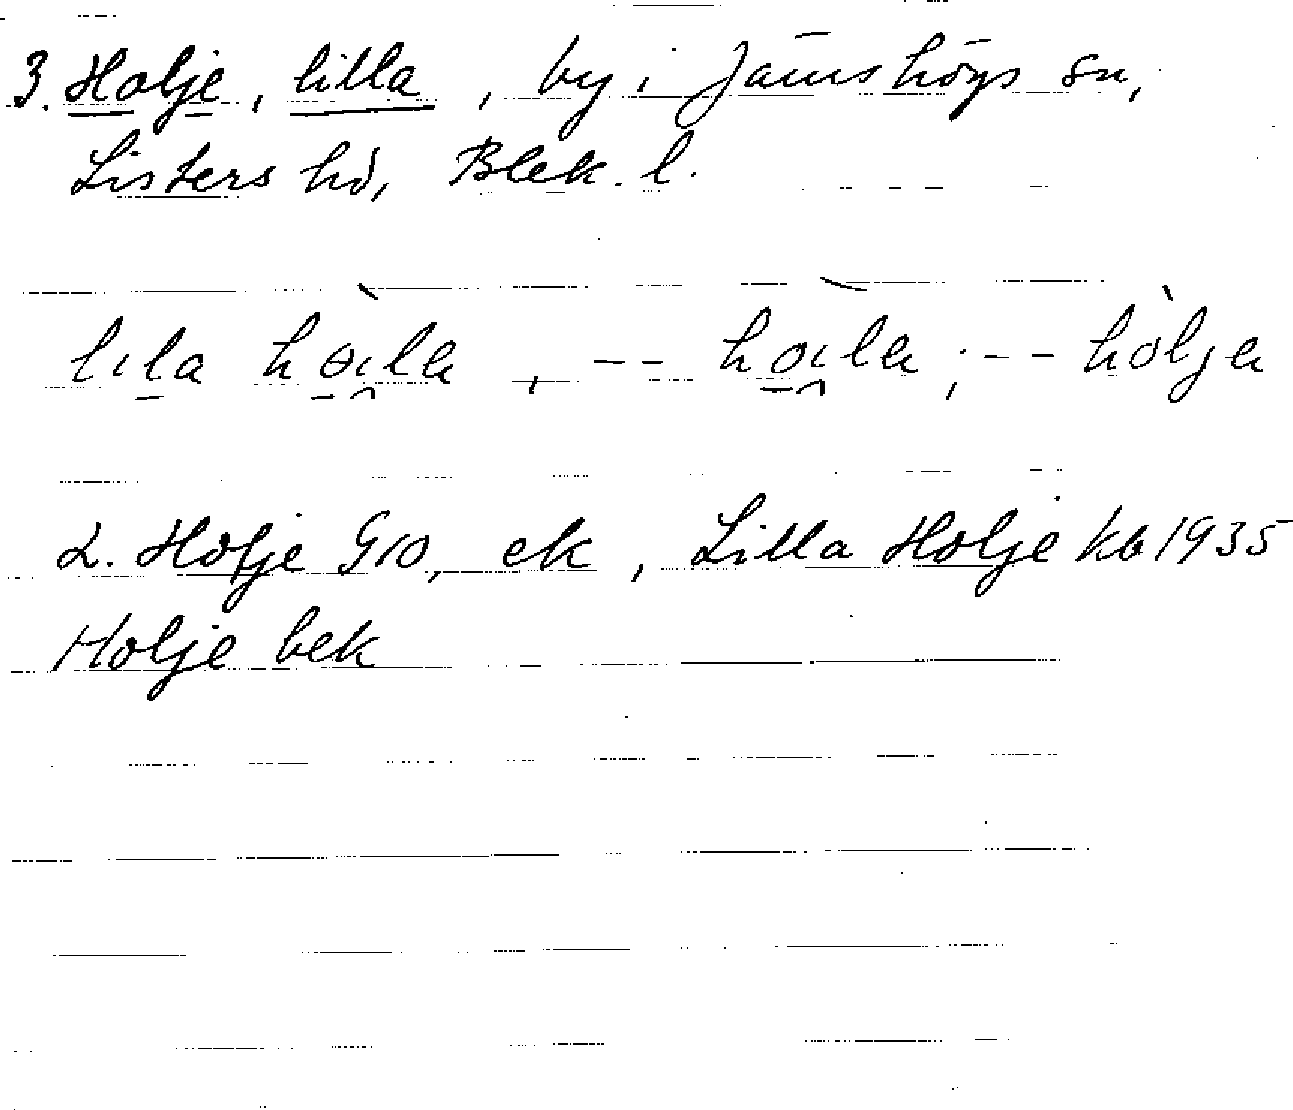 3. Holje, lilla, by i Jämshögs sn,
Listers hd, Blek. l.
lila
L. Holje G10, ek, Lilla Holje kb 1935
Holje bek